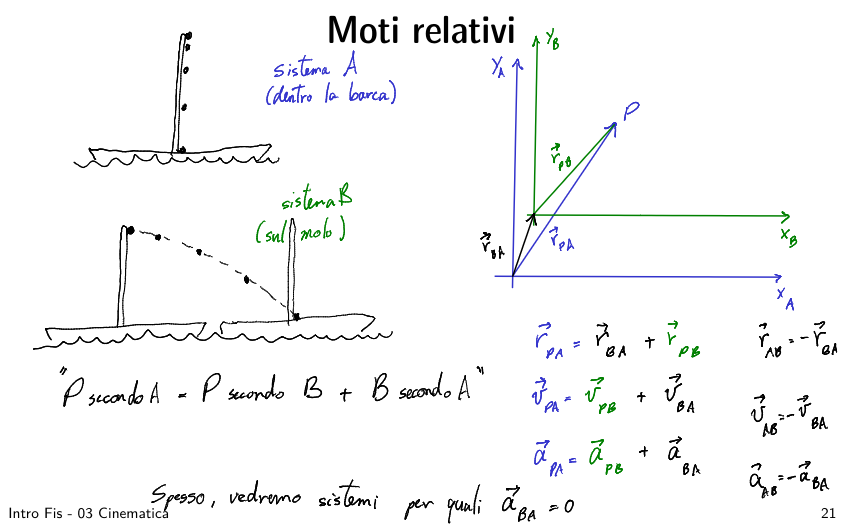 Moti relativi
sistema A
(dentro la barca)
sistema B
(sul molo)
Y_A
Y_B
P
r⃗_PB
r⃗_BA
r⃗_PA
x_B
x_A
r⃗_PA = r⃗_BA + r⃗_PB
r⃗_AB = -r⃗_BA
"P secondo A = P secondo B + B secondo A"
v⃗_PA = v⃗_PB + v⃗_BA
v⃗_AB = -v⃗_BA
a⃗_PA = a⃗_PB + a⃗_BA
a⃗_AB = -a⃗_BA
Spesso, vedremo sistemi per quali a⃗_BA = 0
Intro Fis - 03 Cinematica
21